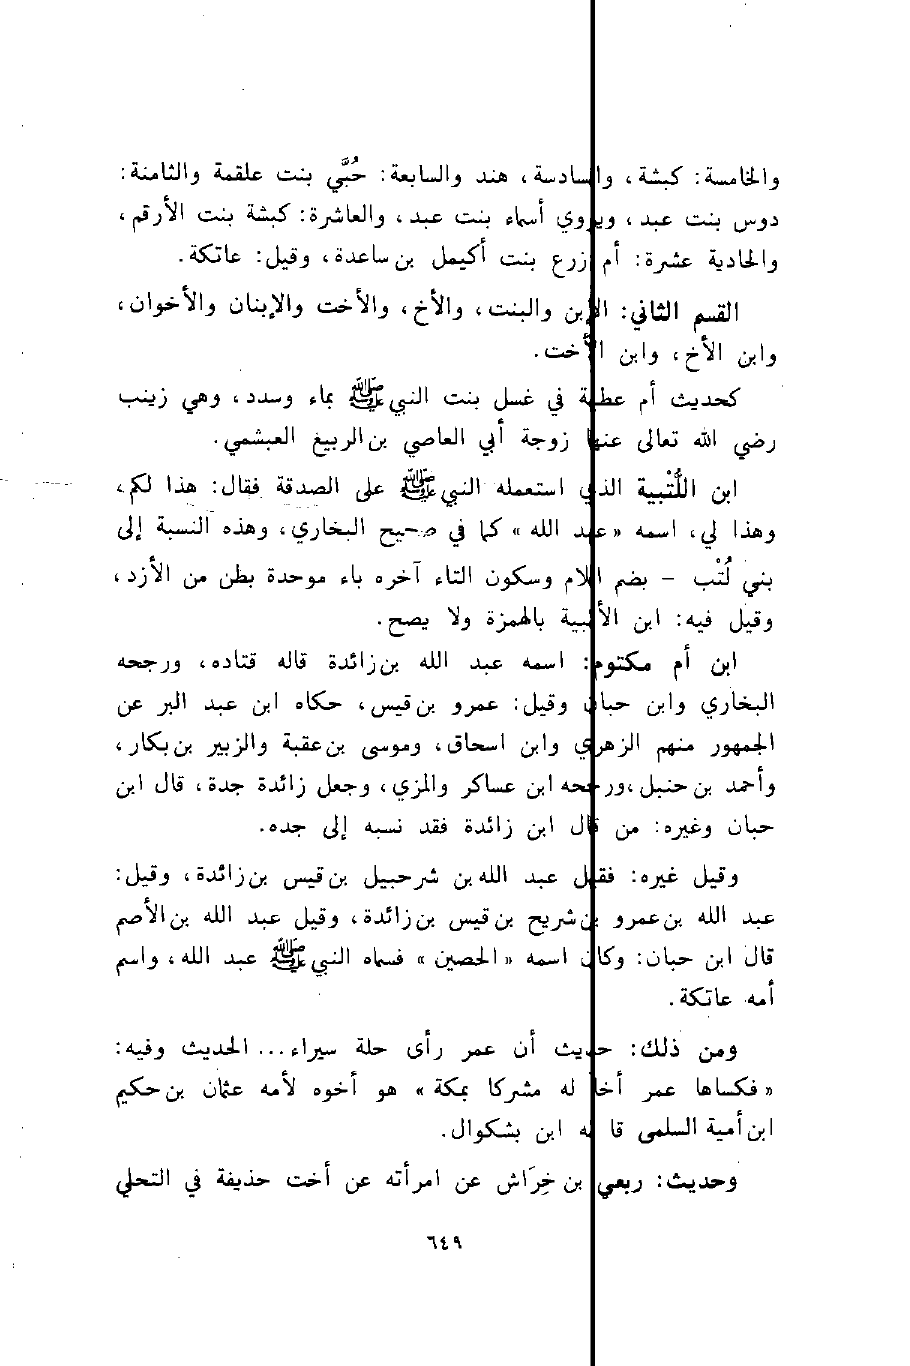 والخامسة: كبشة، والسادسة، هند والسابعة: حُبَّي بنت علقمة والثامنة:
دوس بنت عبد، ويروي أسماء بنت عبد، والعاشرة: كبشة بنت الأرقم،
والحادية عشرة: أم زرع بنت أكيمل بن ساعدة، وقيل: عاتكة.
القسم الثاني: الإبن والبنت، والأخ، والأخت والإبنان والأخوان،
وابن الأخ، وابن الأخت.
كحديث أم عطية في غسل بنت النبي ﷺ بماء وسدد، وهي زينب
رضي الله تعالى عنها زوجة أبي العاصي بن الربيغ العبشمي.
ابن اللُّتْبية الذي استعمله النبي ﷺ على الصدقة فقال: هذا لكم،
وهذا لي، اسمه «عبد الله» كما في صحيح البخاري، وهذه النسبة إلى
بني لُتْب - بضم اللام وسكون التاء آخره باء موحدة بطن من الأزد،
وقيل فيه: ابن الأتبية بالهمزة ولا يصح.
ابن أم مكتوم: اسمه عبد الله بن زائدة قاله قتاده، ورجحه
البخاري وابن حبان وقيل: عمرو بن قيس، حكاه ابن عبد البر عن
الجمهور منهم الزهري وابن اسحاق، وموسى بن عقبة والزبير بن بكار،
وأحمد بن حنبل، ورجحه ابن عساكر والمزي، وجعل زائدة جدة، قال ابن
حبان وغيره: من قال ابن زائدة فقد نسبه إلى جده.
وقيل غيره: فقيل عبد الله بن شرحبيل بن قيس بن زائدة، وقيل:
عبد الله بن عمرو بن شريح بن قيس بن زائدة، وقيل عبد الله بن الأصم
قال ابن حبان: وكان اسمه «الحصين» فسماه النبي ﷺ عبد الله، واسم
أمه عاتكة.
ومن ذلك: حديث أن عمر رأى حلة سيراء... الحديث وفيه:
«فكساها عمر أخا له مشركا بمكة» هو أخوه لأمه عثمان بن حكيم
ابن أمية السلمى قا له ابن بشكوال.
وحديث: ربعي بن خِرَاش عن امرأته عن أخت حذيفة في التحلي
٦٤٩